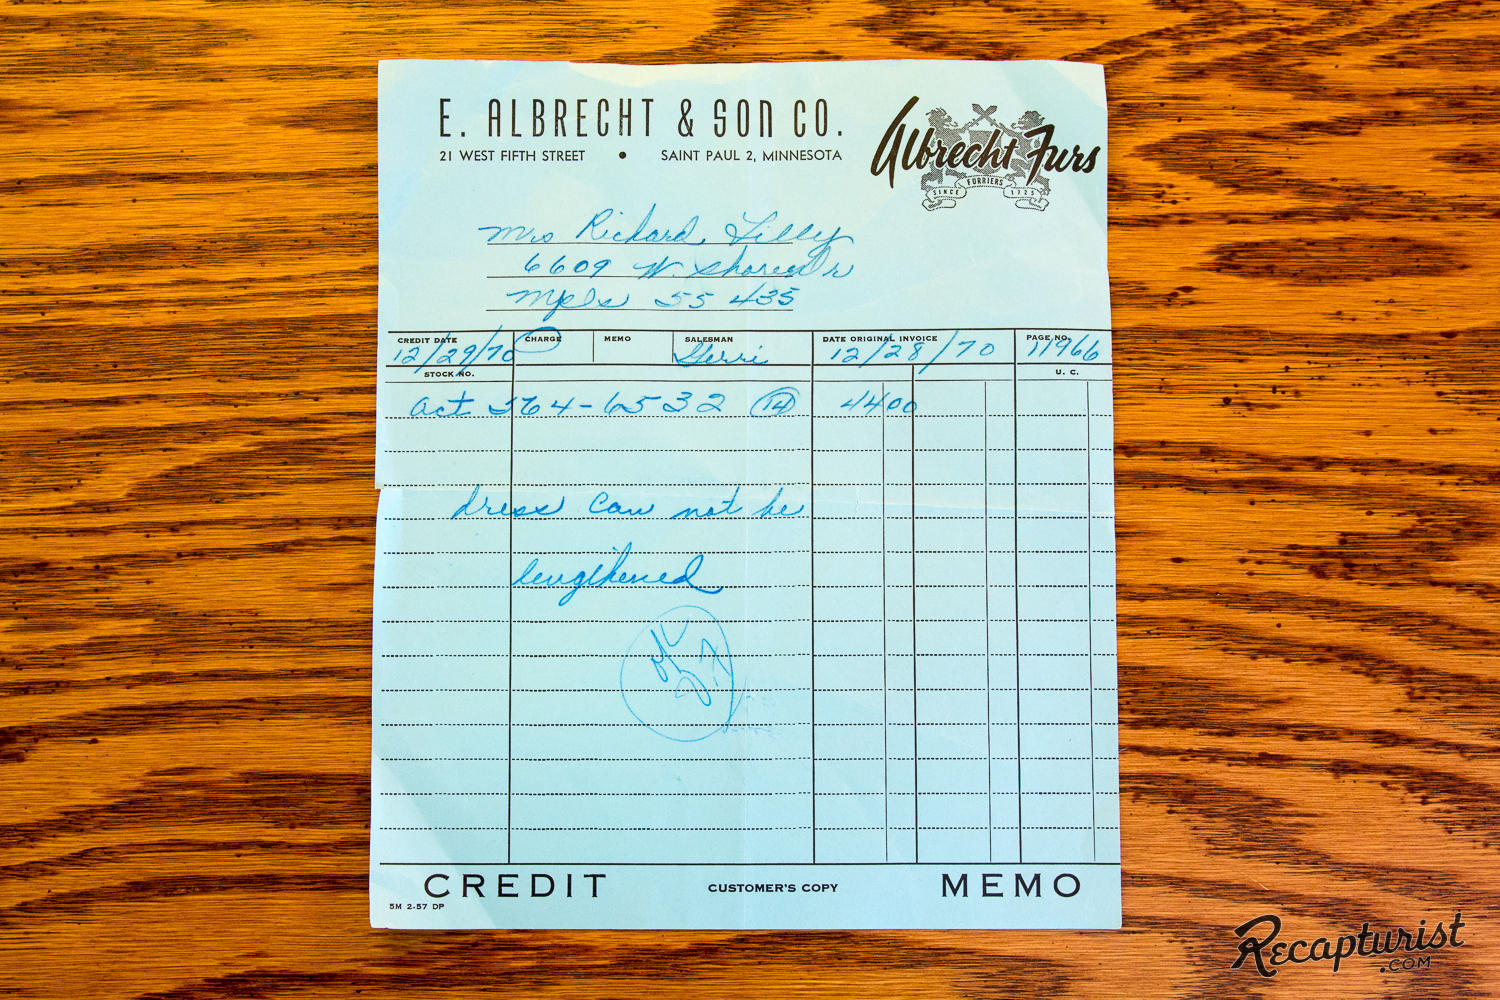 E. ALBRECHT & SON CO.
21 WEST FIFTH STREET • SAINT PAUL 2, MINNESOTA
Albrecht Furs
FURRIERS
SINCE 1725
Mrs Richard Lilly
6609 W. Shore Dr
Mpls 55435
CREDIT DATE CHARGE MEMO SALESMAN DATE ORIGINAL INVOICE PAGE NO.
12/29/70 Gerri 12/28/70 11966
STOCK NO. U. C.
act 564-6532 14 4400
dress can not be
lengthened
ok
CREDIT CUSTOMER'S COPY MEMO
5M 2-57 DP
Recapturist
.COM